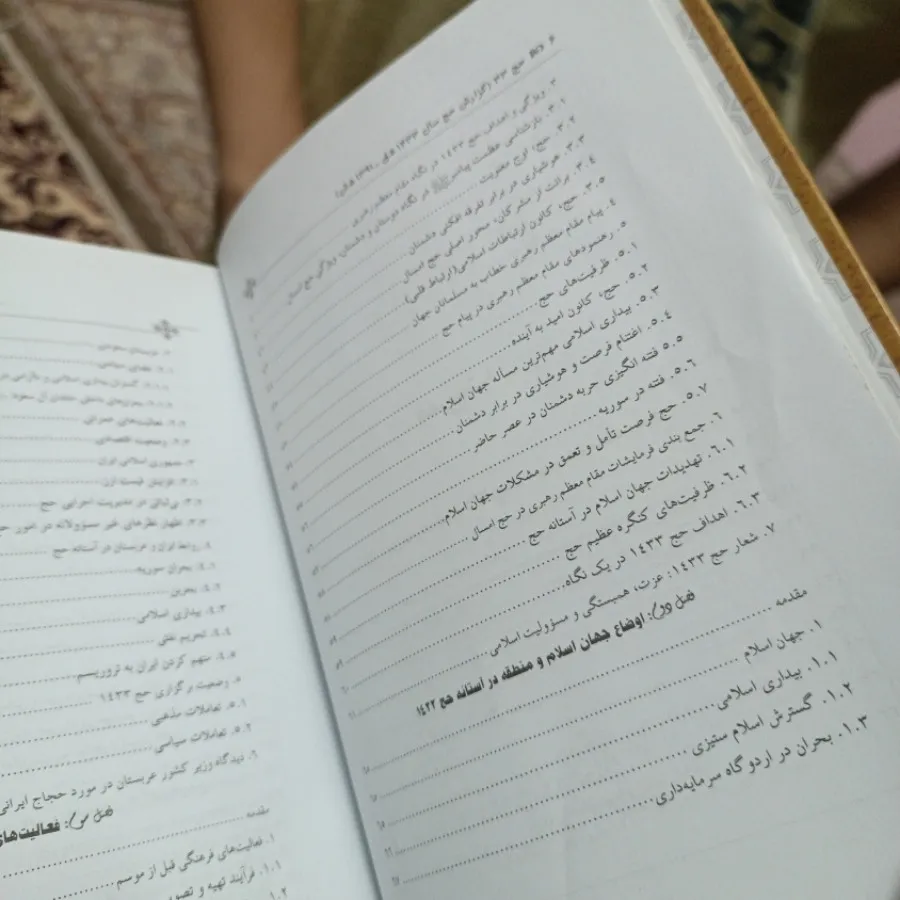 ۶ حج ۳۳ (گزارش حج سال ۱۴۳۳ ه‍.ق ـ ۱۳۹۱ ه‍.ش)
۳. ویژگی و اهداف حج ۱۴۳۳ در نگاه مقام معظم رهبری
۳.۱. بازشناسی عظمت پیامبرﷺ در نگاه دوستان و دشمنان، ویژگی حج امسال
۳.۲. حج، اوج معنویت
۳.۳. هوشیاری در برابر تفرقه افکنی دشمنان
۳.۴. برائت از مشرکان، محور اصلی حج امسال
۳.۵. حج، کانون ارتباطات اسلامی (ارتباط قلبی)
۴. پیام مقام معظم رهبری خطاب به مسلمانان جهان
۵. رهنمودهای مقام معظم رهبری در پیام حج
۵.۱. ظرفیت‌های حج
۵.۲. حج، کانون امید به آینده
۵.۳. بیداری اسلامی مهم‌ترین مسأله جهان اسلام
۵.۴. اغتنام فرصت و هوشیاری در برابر دشمنان
۵.۵. فتنه انگیزی حربه دشمنان در عصر حاضر
۵.۶. فتنه در سوریه
۵.۷. حج فرصت تأمل و تعمق در مشکلات جهان اسلام
۶. جمع بندی فرمایشات مقام معظم رهبری در حج امسال
۶.۱. تهدیدات جهان اسلام در آستانه حج
۶.۲. ظرفیت‌های کنگره عظیم حج
۶.۳. اهداف حج ۱۴۳۳ در یک نگاه
۷. شعار حج ۱۴۳۳: عزت، همبستگی و مسؤولیت اسلامی
فصل دوم: اوضاع جهان اسلام و منطقه در آستانه حج ۱۴۳۳
مقدمه
۱. جهان اسلام
۱.۱. بیداری اسلامی
۱.۲. گسترش اسلام ستیزی
۱.۳. بحران در اردوگاه سرمایه‌داری
۲. عربستان سعودی
۲.۱. فضای سیاسی
۲.۲. فعالیت‌های عمرانی
۲.۳. وضعیت اقتصادی
۳. جمهوری اسلامی ایران
۳.۱. افزایش قیمت ارز
۳.۲. بی‌ثباتی در مدیریت اجرایی حج
۳.۳. اظهار نظرهای غیر مسؤولانه در امور حج
۴. روابط ایران و عربستان در آستانه حج
۴.۱. بحران سوریه
۴.۲. بحرین
۴.۳. بیداری اسلامی
۴.۴. تحریم نفتی
۴.۵. متهم کردن ایران به تروریسم
۵. وضعیت برگزاری حج ۱۴۳۳
۵.۱. تعاملات مذهبی
۵.۲. تعاملات سیاسی
۶. دیدگاه وزیر کشور عربستان در مورد حجاج ایرانی
فصل سوم: فعالیت‌های
مقدمه
۱. فعالیت‌های فرهنگی قبل از موسم
۱.۱. فرآیند تهیه و تصو
۱.۲